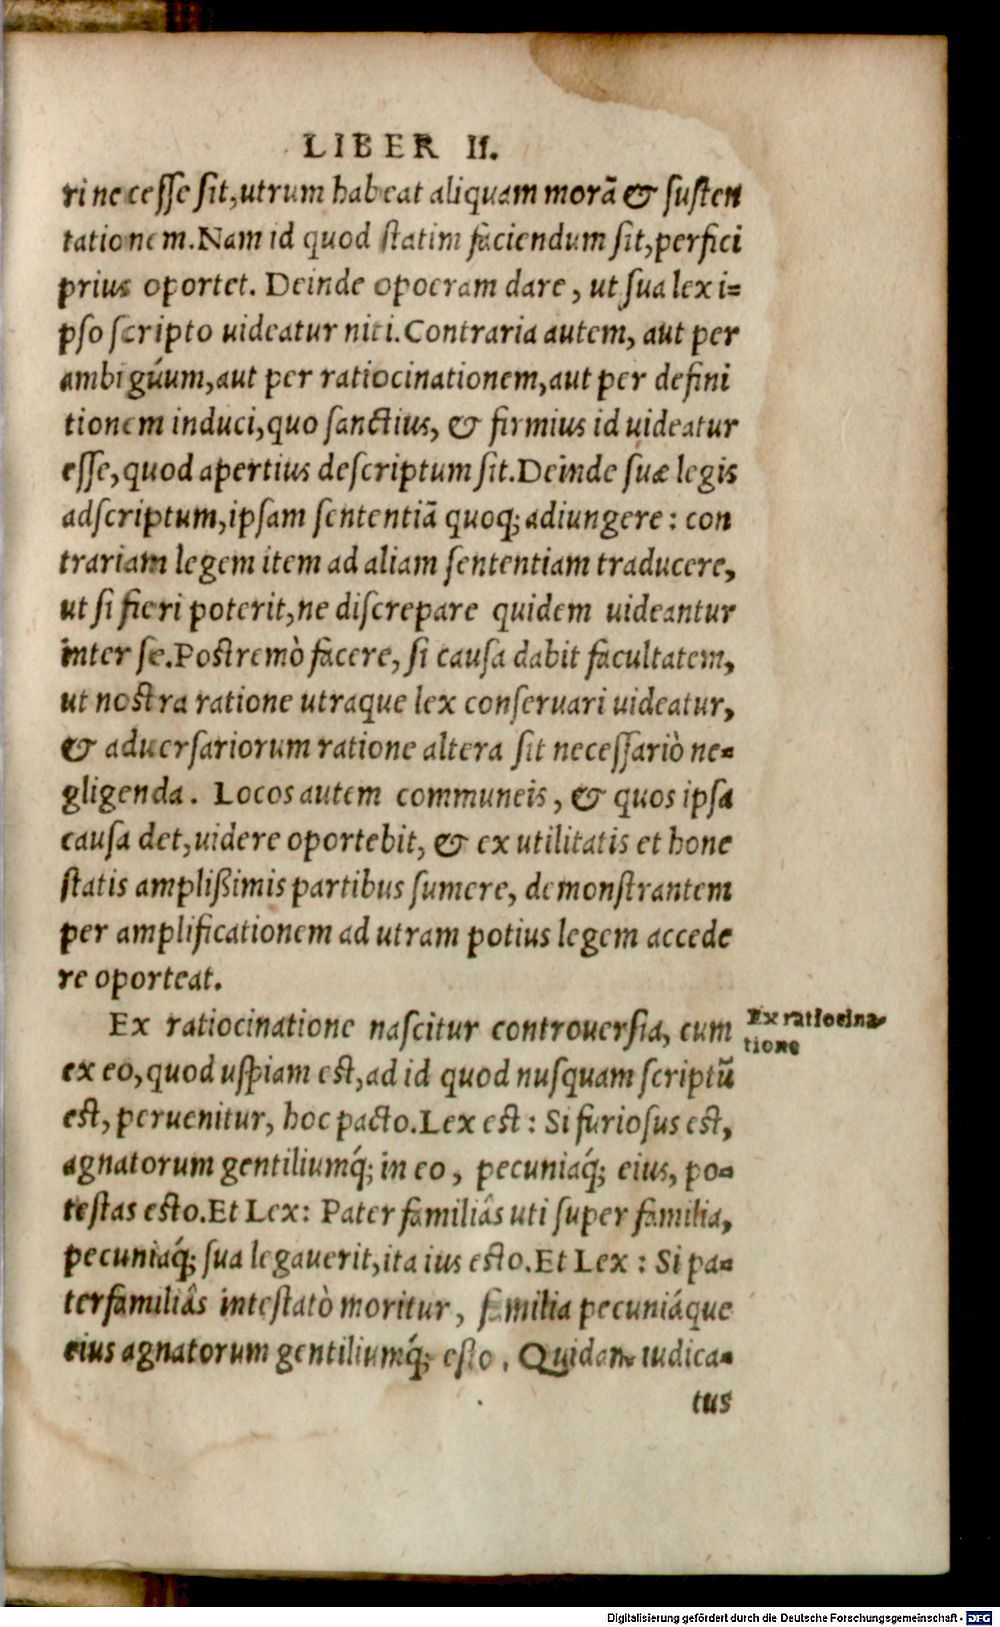 LIBER II.
ri necesse sit, utrum habeat aliquam morã & susten
tationem. Nam id quod statim faciendum sit, perfici
prius oportet. Deinde opoeram dare, ut sua lex i=
pso scripto uideatur niti. Contraria autem, aut per
ambiguúm, aut per ratiocinationem, aut per defini
tionem induci, quo sanctius, & firmius id uideatur
esse, quod apertius descriptum sit. Deinde suæ legis
adscriptum, ipsam sententiã quoq; adiungere: con
trariam legem item ad aliam sententiam traducere,
ut si fieri poterit, ne discrepare quidem uideantur
inter se. Postremò facere, si causa dabit facultatem,
ut nostra ratione utraque lex conseruari uideatur,
& aduersariorum ratione altera sit necessariò ne=
gligenda. Locos autem communeis, & quos ipsa
causa det, uidere oportebit, & ex utilitatis et hone
statis amplißimis partibus sumere, demonstrantem
per amplificationem ad utram potius legem accede
re oporteat.
Ex ratiocinatione nascitur controuersia, cum
ex eo, quod uspiam est, ad id quod nusquam scriptũ
est, peruenitur, hoc pacto. Lex est: Si furiosus est,
agnatorum gentiliumq́; in eo, pecuniaq́; eius, po=
testas esto. Et Lex: Pater familiâs uti super familia,
pecuniaq́; sua legauerit, ita ius esto. Et Lex: Si pa=
terfamiliâs intestatò moritur, familia pecuniáque
eius agnatorum gentiliumq́; esto. Quidam iudica=
tus
Ex ratiocina=
tione
Digitalisierung gefördert durch die Deutsche Forschungsgemeinschaft - DFG